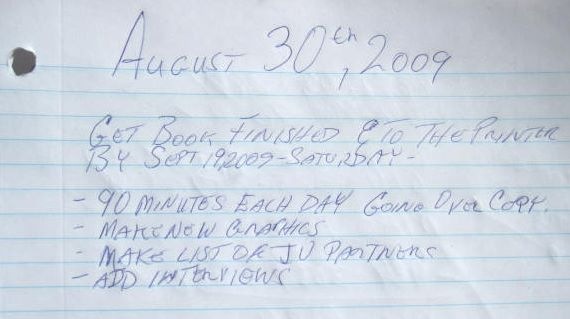 August 30th, 2009
Get Book Finished & To The Printer
By Sept 19 2009 - Saturday -
- 90 Minutes Each Day Going Over Copy.
- Make New Graphics
- Make List of JV Partners
- Add Interviews